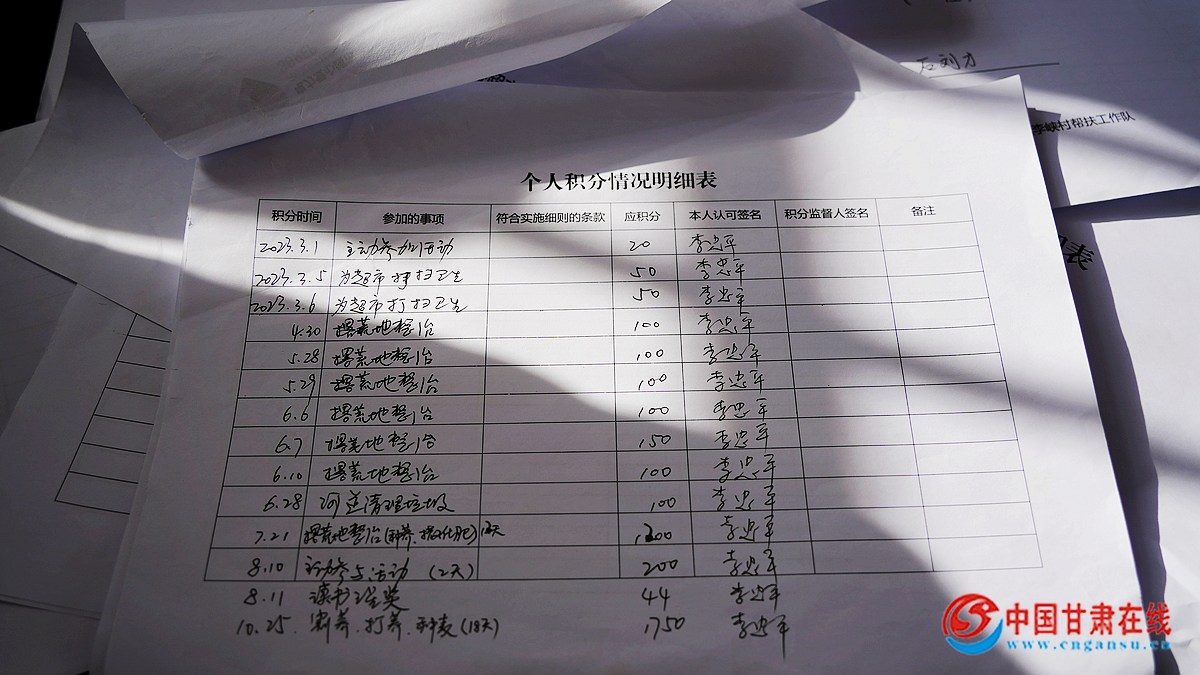 石刘才
李峡村帮扶工作队
细表
个人积分情况明细表
积分时间 参加的事项 符合实施细则的条款 应积分 本人认可签名 积分监督人签名 备注
2023.3.1 主动参加活动 20 李忠军
2023.3.5 为超市打扫卫生 50 李忠军
2023.3.6 为超市打扫卫生 50 李忠军
4.30 撂荒地整治 100 李忠军
5.28 撂荒地整治 100 李忠军
5.29 撂荒地整治 100 李忠军
6.6 撂荒地整治 100 李忠军
6.7 撂荒地整治 150 李忠军
6.10 撂荒地整治 100 李忠军
6.28 河道清理垃圾 100 李忠军
7.21 撂荒地整治 12天 1200 李忠军
8.10 主动参与活动 (2天) 200 李忠军
8.11 读书 奖 44 李忠军
10.25. 割荞.打荞.种麦(18天) 1750 李忠军
中国甘肃在线
www.cngansu.cn